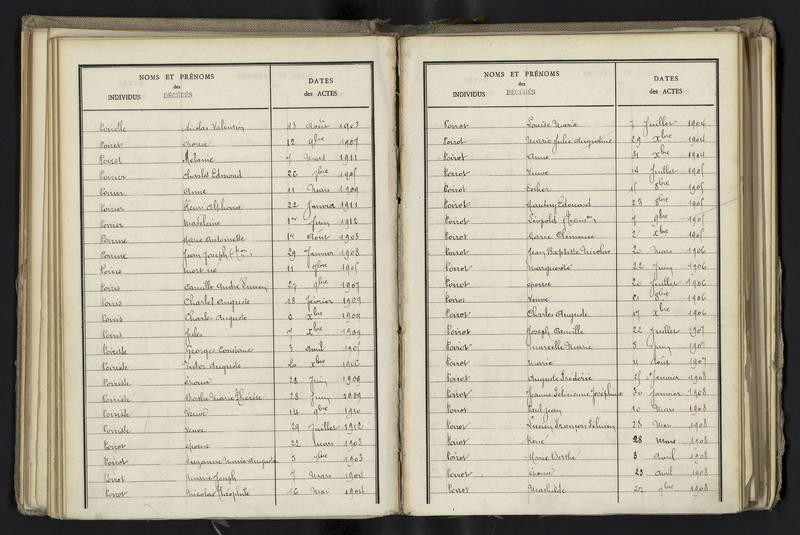 NOMS ET PRÉNOMS
des
INDIVIDUS DÉCÉDÉS
DATES
des ACTES
Nicolas Valentin 13 Août 1903
Poirot épouse 12 9bre 1907
Poirot Mélanie 7 Mars 1911
Poirier Charles Edmond 26 1905
Poirier Anne 11 Mars 1909
Poirier Henri Alphonse 22 Janvier 1911
Poirier Madeleine 1er Juin 1912
Marie Antoinette 1er Août 1903
Jean Joseph 29 Janvier 1908
mort né 11 1905
Camille André Lucien 29 9bre 1907
Charles Auguste 18 février 1909
Charles Auguste 6 Xbre 1909
Jules Xbre 1909
Georges Constant 3 Avril 1905
Victor Auguste 20 Xbre 1906
épouse 28 Juin 1909
Berthe Marie Thérèse 28 Juin 1909
Veuve 14 9bre 1910
Veuve 29 Juillet 1912
Poirot épouse 22 Mars 1903
Poirot Suzanne Marie Augusta 5 1903
Poirot Marie Joseph 7 Mars 1904
Poirot Nicolas Théophile 16 Mai 1904
NOMS ET PRÉNOMS
des
INDIVIDUS DÉCÉDÉS
DATES
des ACTES
Poirot Louise Marie 7 Juillet 1904
Poirot Marie Julie Augustine 29 Xbre 1904
Poirot Anne 31 Xbre 1904
Poirot Veuve 14 Juillet 1905
Poirot Esther 15 8bre 1905
Poirot Edouard 23 8bre 1905
Poirot Léopold 7 9bre 1905
Poirot Marie Clémence 2 Xbre 1905
Poirot Jean Baptiste Nicolas 20 Mars 1906
Poirot Marguerite 22 Juin 1906
Poirot épouse 20 Juillet 1906
Poirot Veuve 21 8bre 1906
Poirot Charles Auguste 17 Xbre 1906
Poirot Joseph Camille 22 Juillet 1907
Poirot Marcelle Marie 5 Juin 1907
Poirot Marie 4 Août 1907
Poirot Auguste Frédéric 25 Janvier 1908
Poirot Jeanne Joséphine 30 Janvier 1908
Poirot Paul Jean 10 Mars 1908
Poirot Lucien François 28 Mai 1908
Poirot René 28 Mars 1908
Poirot Marie Berthe 3 Avril 1908
Poirot épouse 23 Avril 1908
Poirot Mathilde 27 9bre 1908